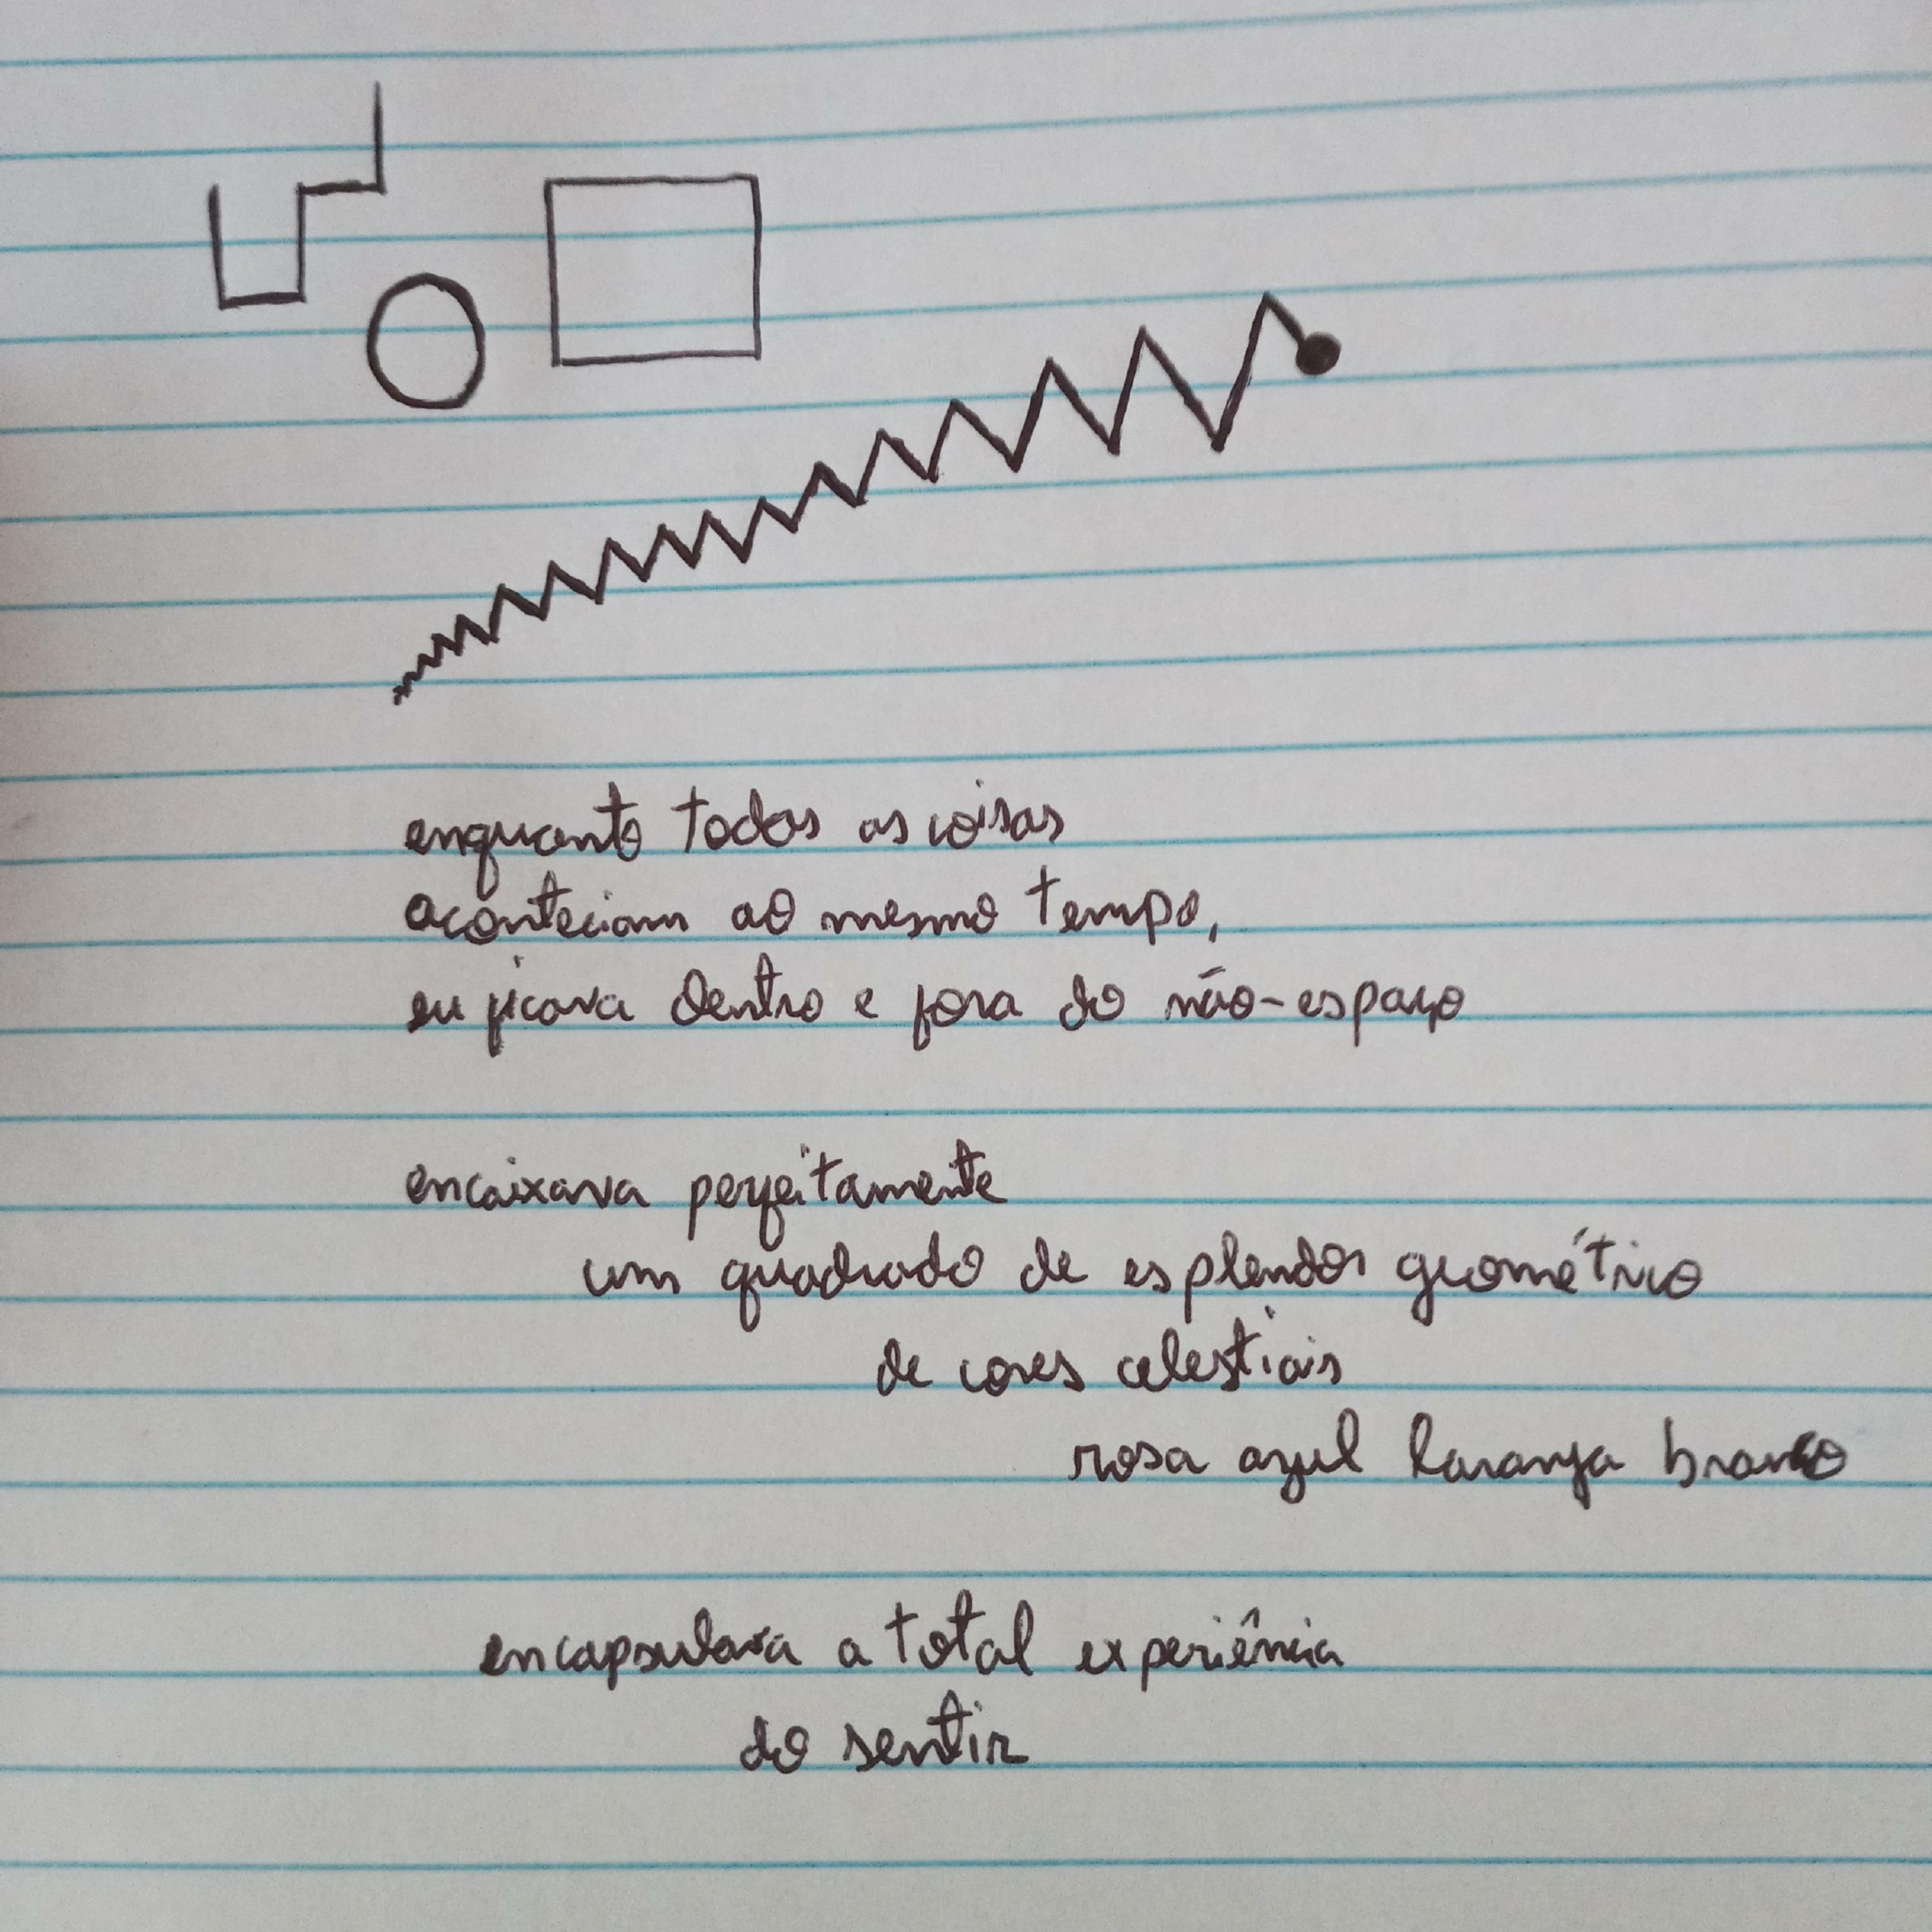 enquanto todas as coisas
aconteciam ao mesmo tempo,
eu ficava dentro e fora do não-espaço
encaixava perfeitamente
um quadrado de esplendor geométrico
de cores celestiais
rosa azul laranja branco
encapsulava a total experiência
do sentir